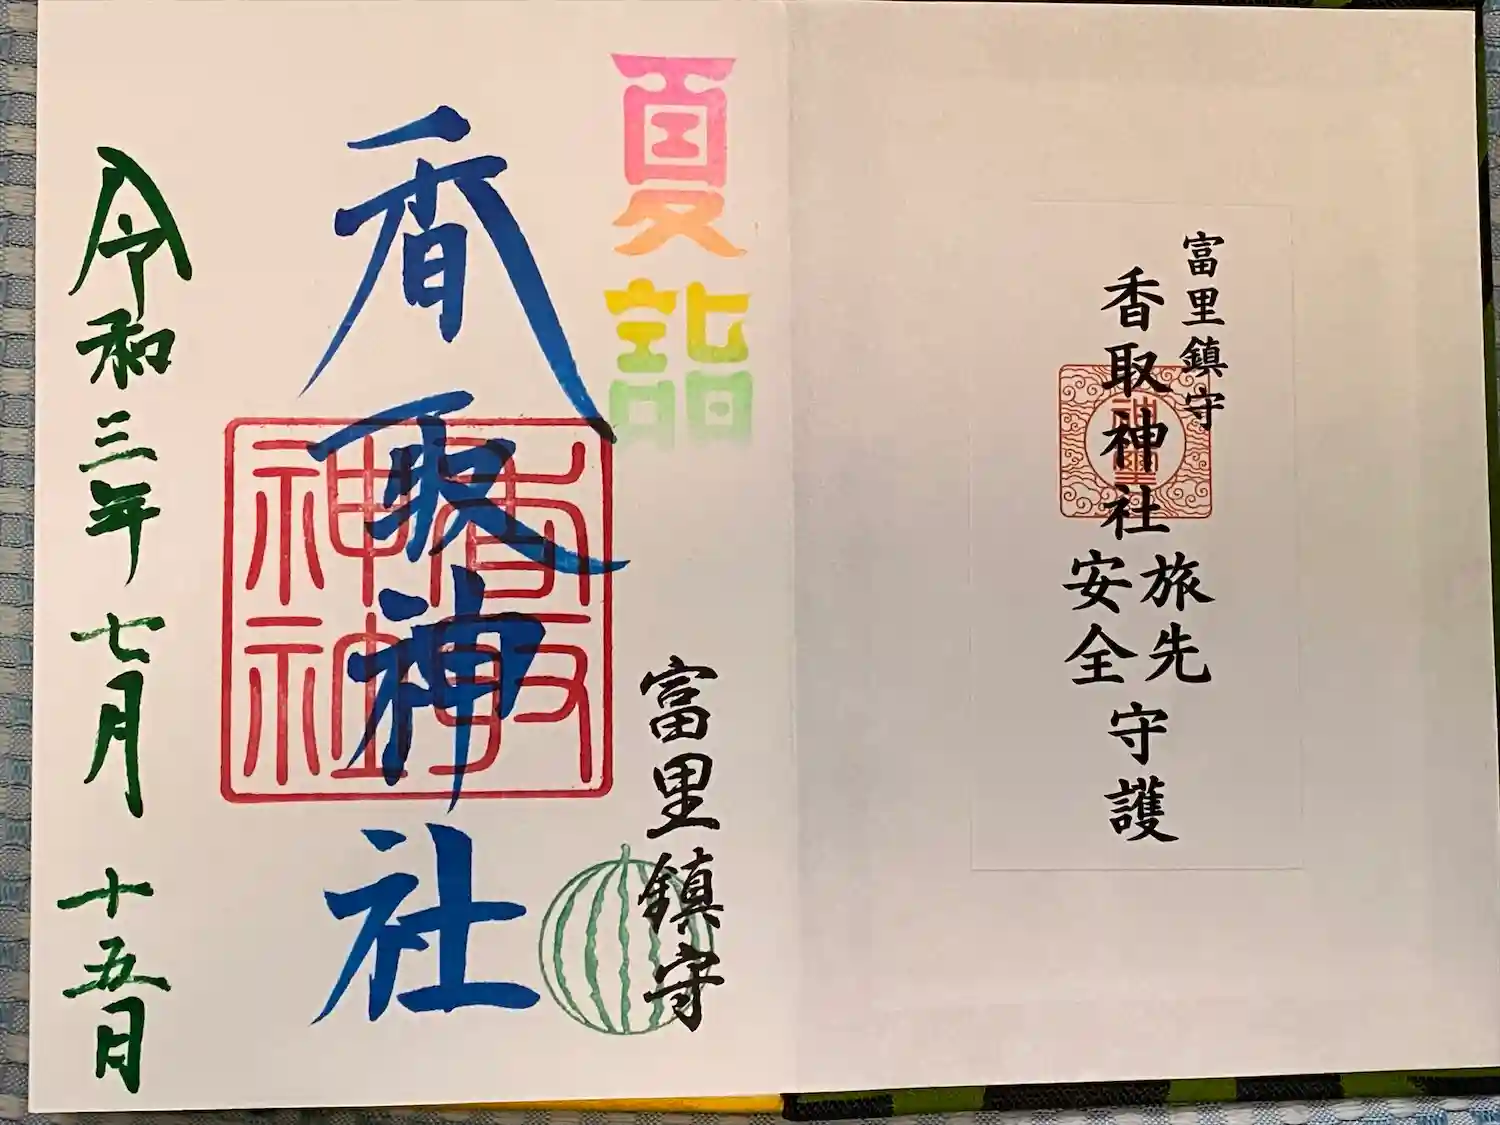 富里鎮守
香取神社
旅先
安全
守護
神璽
夏詣
富里鎮守
香取神社
香取
神社
令和三年七月十五日